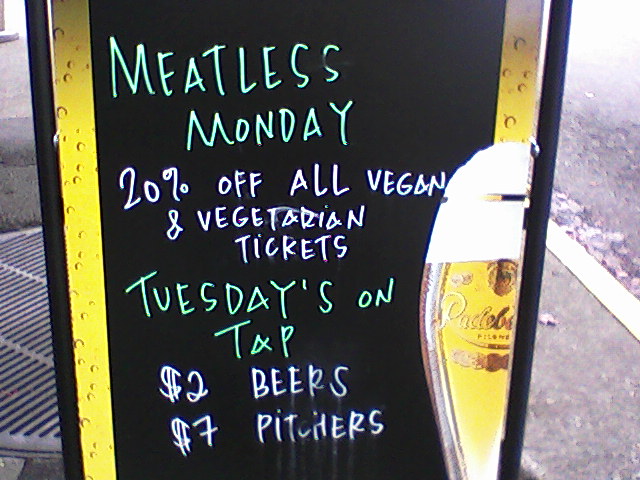 MEATLESS
MONDAY
20% OFF ALL VEGAN
& VEGETARIAN
TICKETS
TUESDAY'S ON
TAP
$2 BEERS
$7 PITCHERS